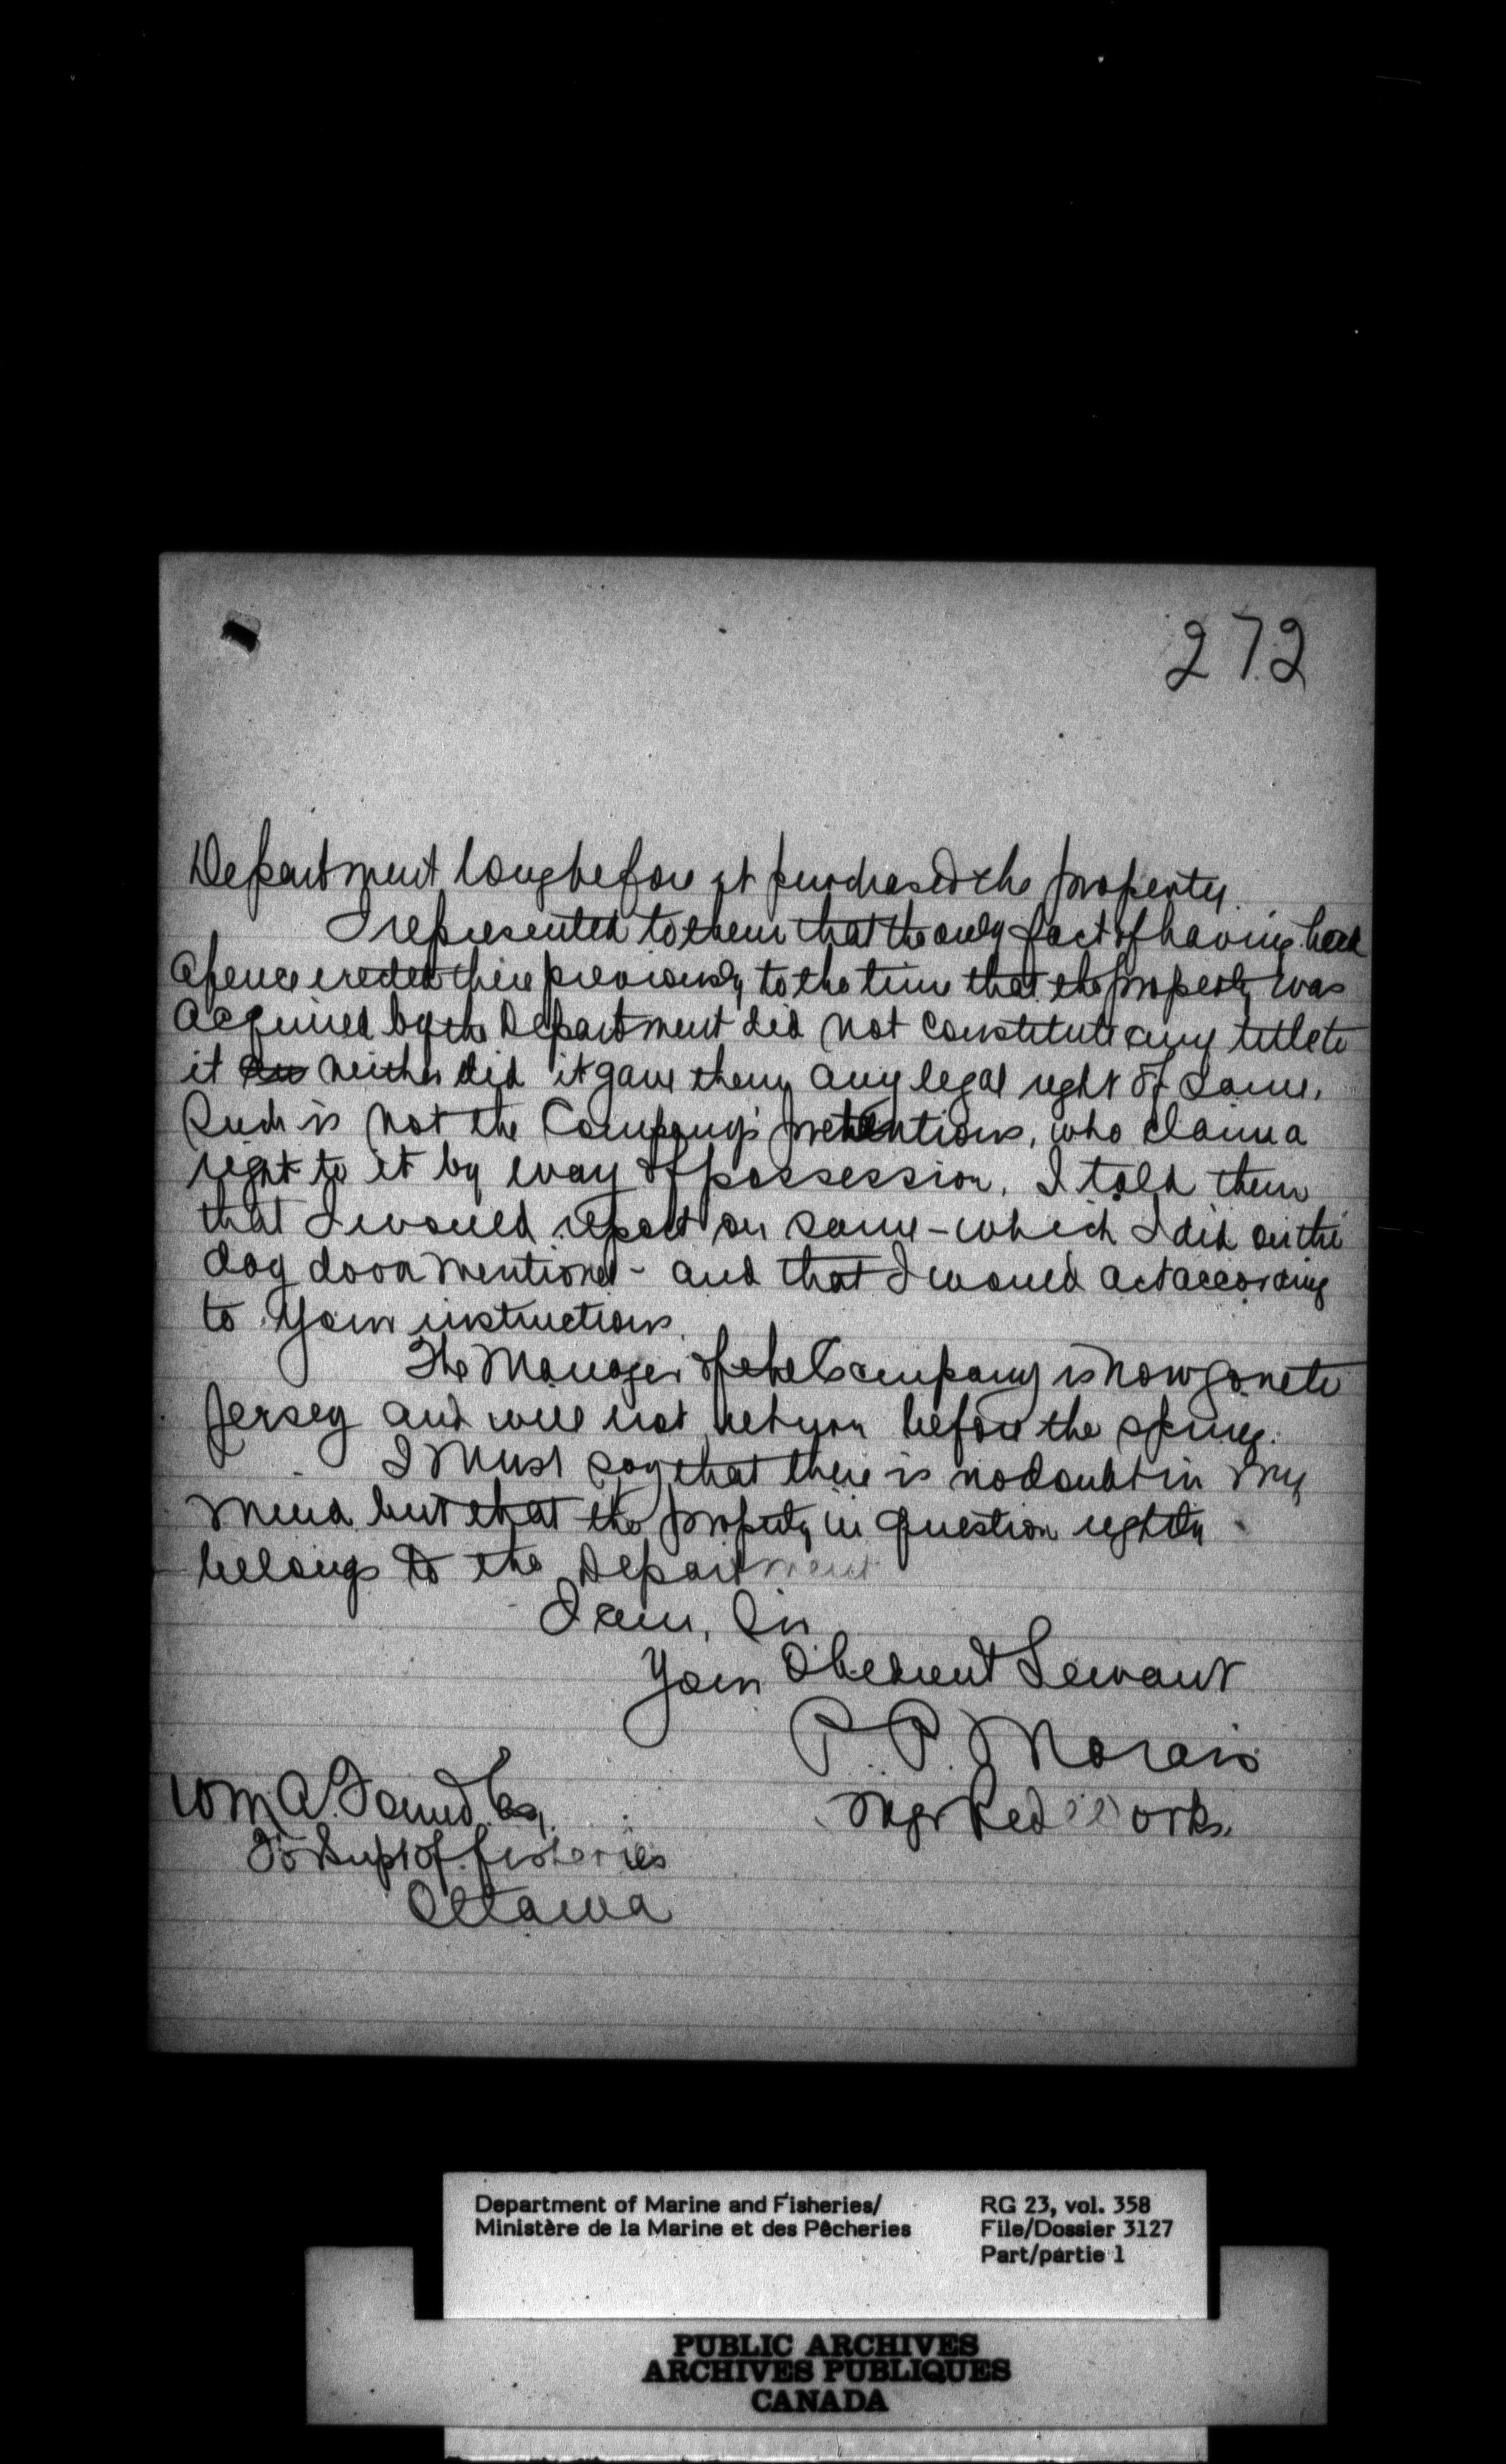 272
Department long before it purchased the property.
I represented to them that the only fact of having had
a fence erected there previously to the time that the property was
acquired by the Department did not constitute any title to
it neither did it gave them any legal right of same.
Such is not the Company's pretentions, who claim a
right to it by way of possession. I told them
that I would report on same - which I did on the
day mentioned - and that I would act according
to your instructions.
The Manager of the Company is now gone to
Jersey and will not return before the spring.
I must say that there is no doubt in my
mind but that the property in question rightly
belongs to the Department
I am, Sir
Your Obedient Servant
P. P. Morais
Mgr Red. Works.
Wm A. Found Esq.
Supt of fisheries
Ottawa
Department of Marine and Fisheries/
Ministère de la Marine et des Pêcheries
RG 23, vol. 358
File/Dossier 3127
Part/partie 1
PUBLIC ARCHIVES
ARCHIVES PUBLIQUES
CANADA